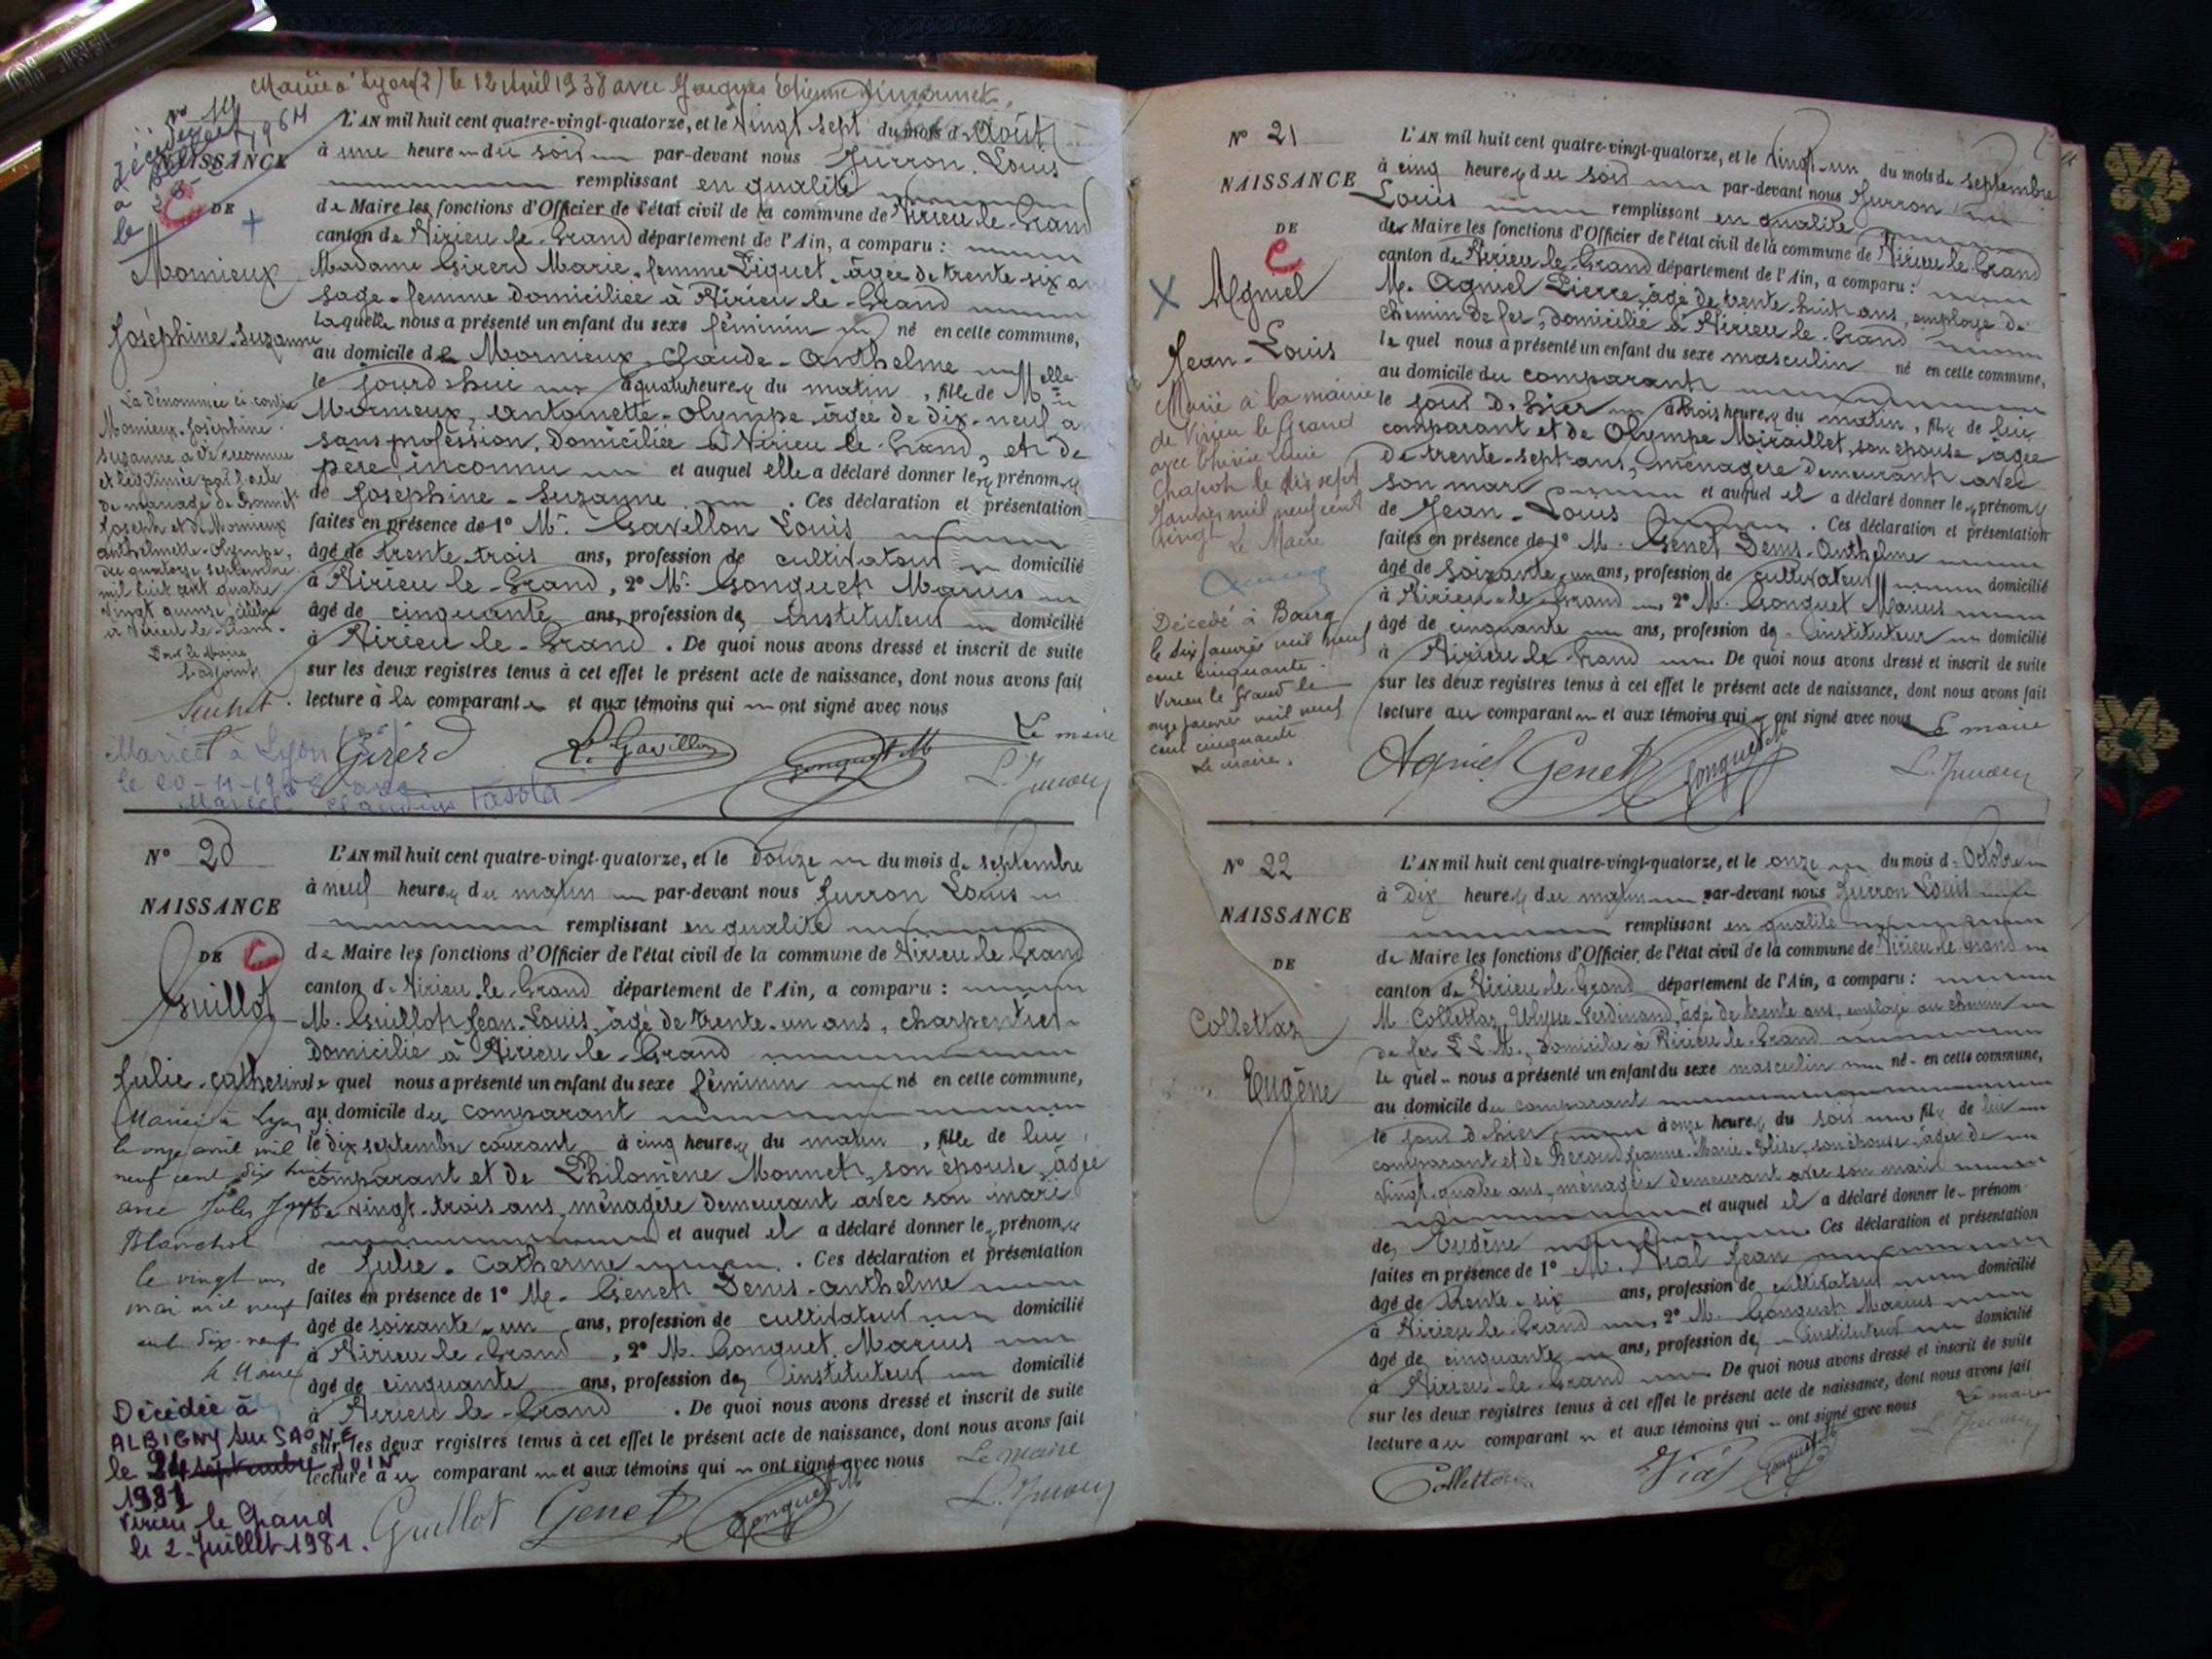 Mariée à Lyon (2) le 12 Avril 1938 avec Jacques Etienne
No 19
décédée
1964
à
le
NAISSANCE
DE
Mornieux
Joséphine-Suzanne
La dénommée ci-contre
Mornieux Joséphine
Suzanne a été reconnue
et légitimée par l'acte
de mariage de Bonnet
Joseph et de Mornieux
anthelmette-Olympe,
du quatorze septembre
mil huit cent quatre
vingt quinze, célébré
à Virieu-le-Grand.
Pour le Maire
L'adjoint
Mariée à Lyon
le 20-11-19 avec
Marcel Claudius
L'AN mil huit cent quatre-vingt-quatorze, et le vingt sept du mois d'Août
à une heure du soir par-devant nous Jurron Louis
remplissant en qualité
de Maire les fonctions d'Officier de l'état civil de la commune de Virieu-le-Grand
canton de Virieu-le-Grand département de l'Ain, a comparu :
Madame Girerd Marie, femme Piquet, âgée de trente-six an
sage-femme domiciliée à Virieu-le-Grand
laquelle nous a présenté un enfant du sexe féminin né en cette commune,
au domicile de Mornieux Claude-Anthelme
le jourd'hui à quatre heures du matin, fille de Melle
Mornieux, Antoinette-Olympe, âgée de dix-neuf an
sans profession, domiciliée à Virieu-le-Grand, et de
père inconnu et auquel elle a déclaré donner les prénoms
de Joséphine-Suzanne. Ces déclaration et présentation
faites en présence de 1° Mr. Gavillon Louis
âgé de trente-trois ans, profession de cultivateur domicilié
à Virieu-le-Grand, 2° Mr. Gonguet Marius
âgé de cinquante ans, profession de instituteur domicilié
à Virieu-le-Grand. De quoi nous avons dressé et inscrit de suite
sur les deux registres tenus à cet effet le présent acte de naissance, dont nous avons fait
lecture à la comparante et aux témoins qui ont signé avec nous
Le maire
Girerd L. Gavillon Gonguet M L. Jurron
No 20
NAISSANCE
DE C
Guillot
Julie-Catherine
Mariée à Lyon
le onze avril mil
neuf cent dix huit
avec Jules
Blanchot
le vingt un
mai mil neuf
cent dix-neuf
Le Maire
Décédée à
ALBIGNY sur SAONE
le 24 septembre JUIN
1981
Virieu le Grand
le 2 Juillet 1981.
L'AN mil huit cent quatre-vingt-quatorze, et le douze du mois de septembre
à neuf heures du matin par-devant nous Jurron Louis
remplissant en qualité
de Maire les fonctions d'Officier de l'état civil de la commune de Virieu le Grand
canton de Virieu-le-Grand département de l'Ain, a comparu :
M. Guillot Jean-Louis, âgé de trente-un ans, charpentier
domicilié à Virieu-le-Grand
le quel nous a présenté un enfant du sexe féminin né en cette commune,
au domicile du comparant
le dix septembre courant à cinq heures du matin, fille de lui
comparant et de Philomène Monnet, son épouse, âgée
de vingt-trois ans, ménagère demeurant avec son mari
et auquel il a déclaré donner les prénoms
de Julie-Catherine. Ces déclaration et présentation
faites en présence de 1° M. Genet Denis-Anthelme
âgé de soixante-un ans, profession de cultivateur domicilié
à Virieu le Grand, 2° M. Gonguet Marius
âgé de cinquante ans, profession de instituteur domicilié
à Virieu le Grand. De quoi nous avons dressé et inscrit de suite
sur les deux registres tenus à cet effet le présent acte de naissance, dont nous avons fait
lecture au comparant et aux témoins qui ont signé avec nous Le maire
Guillot Genet Gonguet M L. Jurron
No 21
NAISSANCE
DE
Agniel
Jean-Louis
Marié à la mairie
de Virieu le Grand
avec Thérèse Louise
Chapot le dix sept
Janvier mil neuf cent
vingt
Le Maire
Décédé à Bourg
le six janvier mil neuf
cent cinquante.
Virieu le Grand le
onze janvier mil neuf
cent cinquante
Le maire.
L'AN mil huit cent quatre-vingt-quatorze, et le vingt-un du mois de septembre
à cinq heures du soir par-devant nous Jurron
Louis remplissant en qualité
de Maire les fonctions d'Officier de l'état civil de la commune de Virieu le Grand
canton de Virieu-le-Grand département de l'Ain, a comparu :
M. Agniel Pierre, âgé de trente-huit ans, employé de
chemin de fer, domicilié à Virieu-le-Grand
le quel nous a présenté un enfant du sexe masculin né en cette commune,
au domicile du comparant
le jour d'hier à trois heures du matin, fils de lui
comparant et de Olympe Miraillet, son épouse, âgée
de trente-sept ans, ménagère demeurant avec
son mari et auquel il a déclaré donner les prénoms
de Jean-Louis. Ces déclaration et présentation
faites en présence de 1° M. Genet Denis-Anthelme
âgé de soixante-un ans, profession de cultivateur domicilié
à Virieu-le-Grand 2° M. Gonguet Marius
âgé de cinquante ans, profession de instituteur domicilié
à Virieu le Grand. De quoi nous avons dressé et inscrit de suite
sur les deux registres tenus à cet effet le présent acte de naissance, dont nous avons fait
lecture au comparant et aux témoins qui ont signé avec nous Le maire
Agniel Genet Gonguet M L. Jurron
No 22
NAISSANCE
DE
Collettaz
Eugène
L'AN mil huit cent quatre-vingt-quatorze, et le onze du mois d'Octobre
à dix heures du matin par-devant nous Jurron Louis
remplissant en qualité
de Maire les fonctions d'Officier de l'état civil de la commune de Virieu-le-Grand
canton de Virieu-le-Grand département de l'Ain, a comparu :
M. Collettaz Ulysse-Ferdinand, âgé de trente ans, employé au chemin
de fer P.L.M., domicilié à Virieu-le-Grand
le quel nous a présenté un enfant du sexe masculin né en cette commune,
au domicile du comparant
le jour d'hier à onze heures du soir fils de lui
comparant et de Beroud Jeanne-Marie-Elise, son épouse, âgée de
vingt-quatre ans, ménagère demeurant avec son mari
et auquel il a déclaré donner le prénom
de Eugène. Ces déclaration et présentation
faites en présence de 1° M. Vial Jean
âgé de trente-six ans, profession de cultivateur domicilié
à Virieu le Grand 2° M. Gonguet Marius
âgé de cinquante ans, profession de instituteur domicilié
à Virieu-le-Grand. De quoi nous avons dressé et inscrit de suite
sur les deux registres tenus à cet effet le présent acte de naissance, dont nous avons fait
lecture au comparant et aux témoins qui ont signé avec nous Le maire
Collettaz Vial Gonguet M L. Jurron